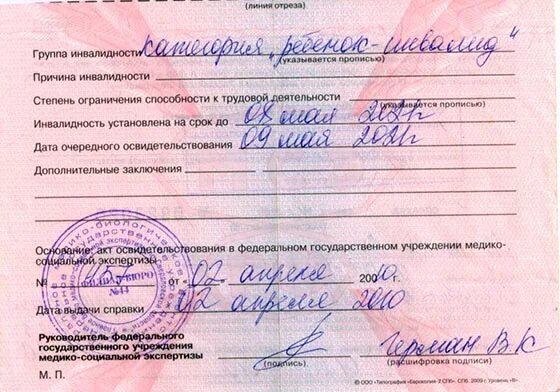 (линия отреза)
Группа инвалидности категория „ребенок-инвалид"
(указывается прописью)
Причина инвалидности
Степень ограничения способности к трудовой деятельности
(указывается прописью)
Инвалидность установлена на срок до 08 мая 2021г
Дата очередного освидетельствования 09 мая 2021г
Дополнительные заключения
Основание: акт освидетельствования в федеральном государственном учреждении медико-
социальной экспертизы
№ от 02 апреля 2010г.
ФИЛИАЛ БЮРО
№44
Дата выдачи справки 02 апреля 2010
Руководитель федерального
государственного учреждения
медико-социальной экспертизы
Герман В.К
(подпись) (расшифровка подписи)
М. П.
© ООО «Типография «Еврокопия-2 СПб» СПб, 2009 г. Уровень «В»